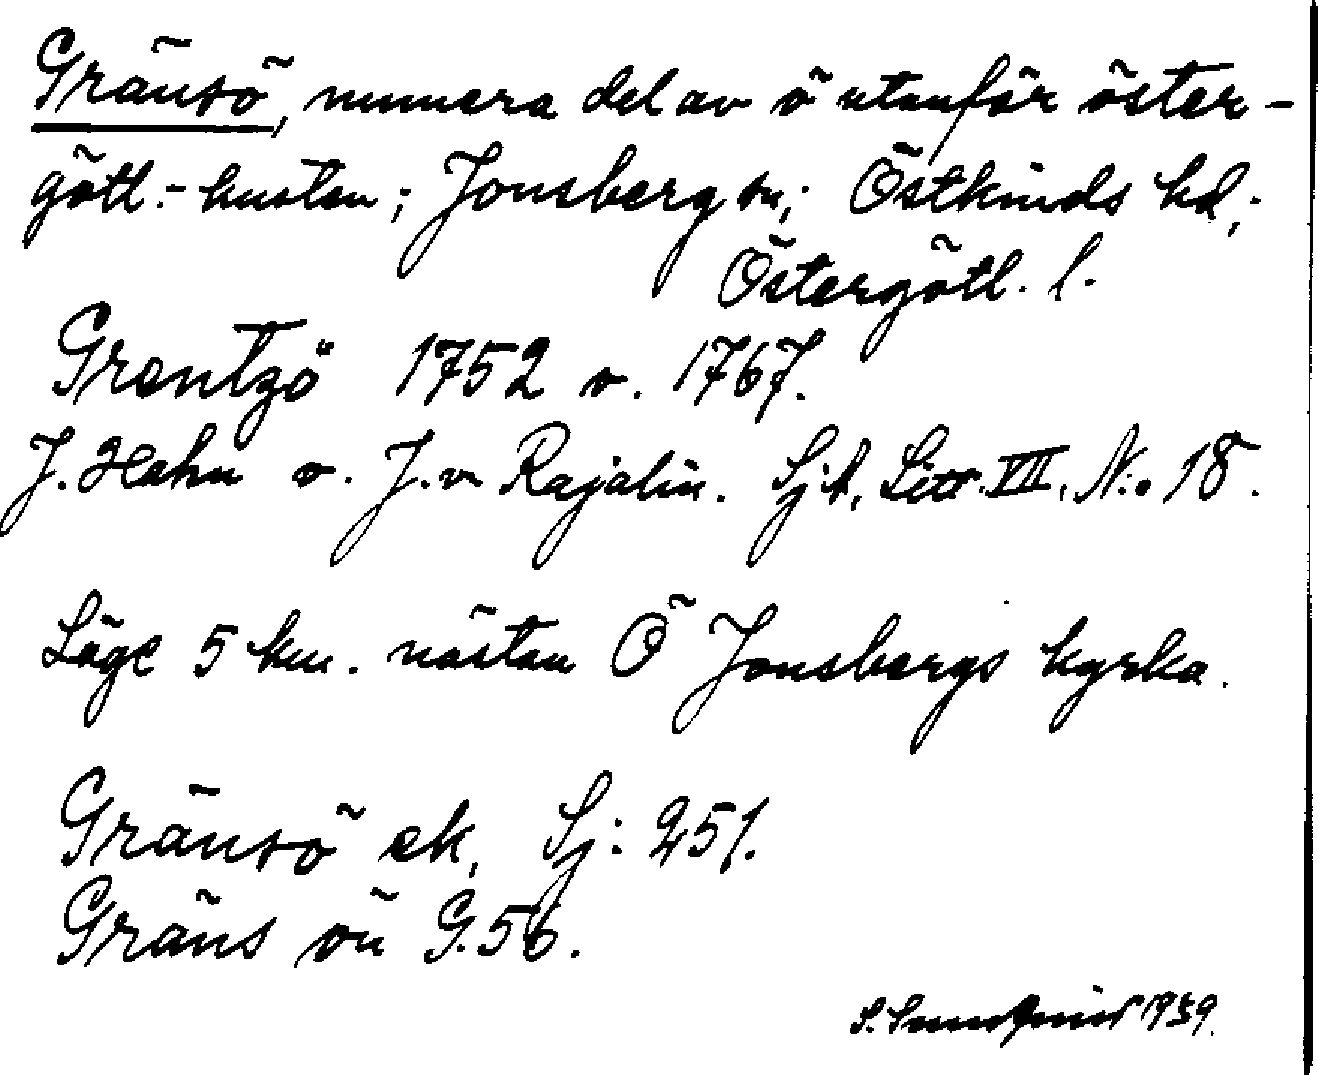 Gränsö, numera del av ö utanför öster-
götl.-kusten; Jonsberg sn; Östkinds hd;
Östergötl. l.
Grentzö 1752 o. 1767.
J. Hahn o. J. v Rajalin. Sjk, Litt. VII, N:o 18.
Läge 5 km. nästan Ö Jonsbergs kyrka.
Gränsö ek, Sj: 251.
Gräns ön G. 56.
1939.